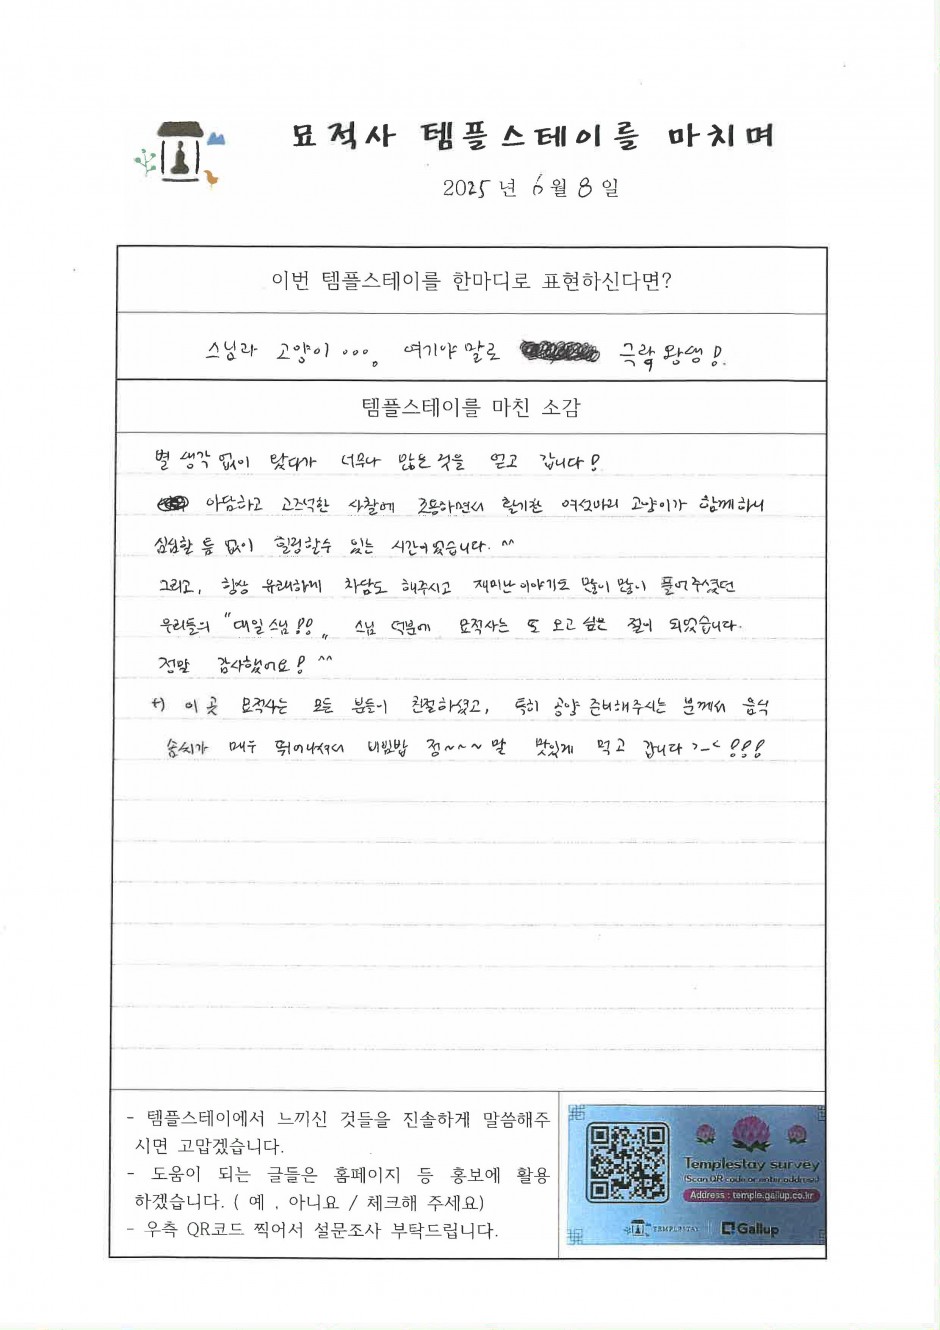 묘적사 템플스테이를 마치며
2025년 6월 8일
이번 템플스테이를 한마디로 표현하신다면?
스님과 고양이... 여기야 말로 극락왕생!
템플스테이를 마친 소감
별 생각 없이 왔다가 너무나 많은 것을 얻고 갑니다!
아담하고 고즈넉한 사찰에 조용하면서 활기찬 여섯마리 고양이가 함께하니
심심할 틈 없이 힐링할수 있는 시간이었습니다. ^^
그리고, 항상 유쾌하게 차담도 해주시고 재미난 이야기도 많이 많이 풀어주셨던
우리들의 "대일스님!!" 스님 덕분에 묘적사는 또 오고 싶은 절이 되었습니다.
정말 감사했어요! ^^
+) 이 곳 묘적사는 모든 분들이 친절하셨고, 특히 공양 준비해주시는 분께서 음식
솜씨가 매우 뛰어나셔서 비빔밥 정~~~말 맛있게 먹고 갑니다 >_< !!!
- 템플스테이에서 느끼신 것들을 진솔하게 말씀해주
시면 고맙겠습니다.
- 도움이 되는 글들은 홈페이지 등 홍보에 활용
하겠습니다. ( 예 , 아니요 / 체크해 주세요)
- 우측 QR코드 찍어서 설문조사 부탁드립니다.
Templestay survey
(Scan QR code or enter address)
Address : temple.gallup.co.kr
TEMPLESTAY
Gallup